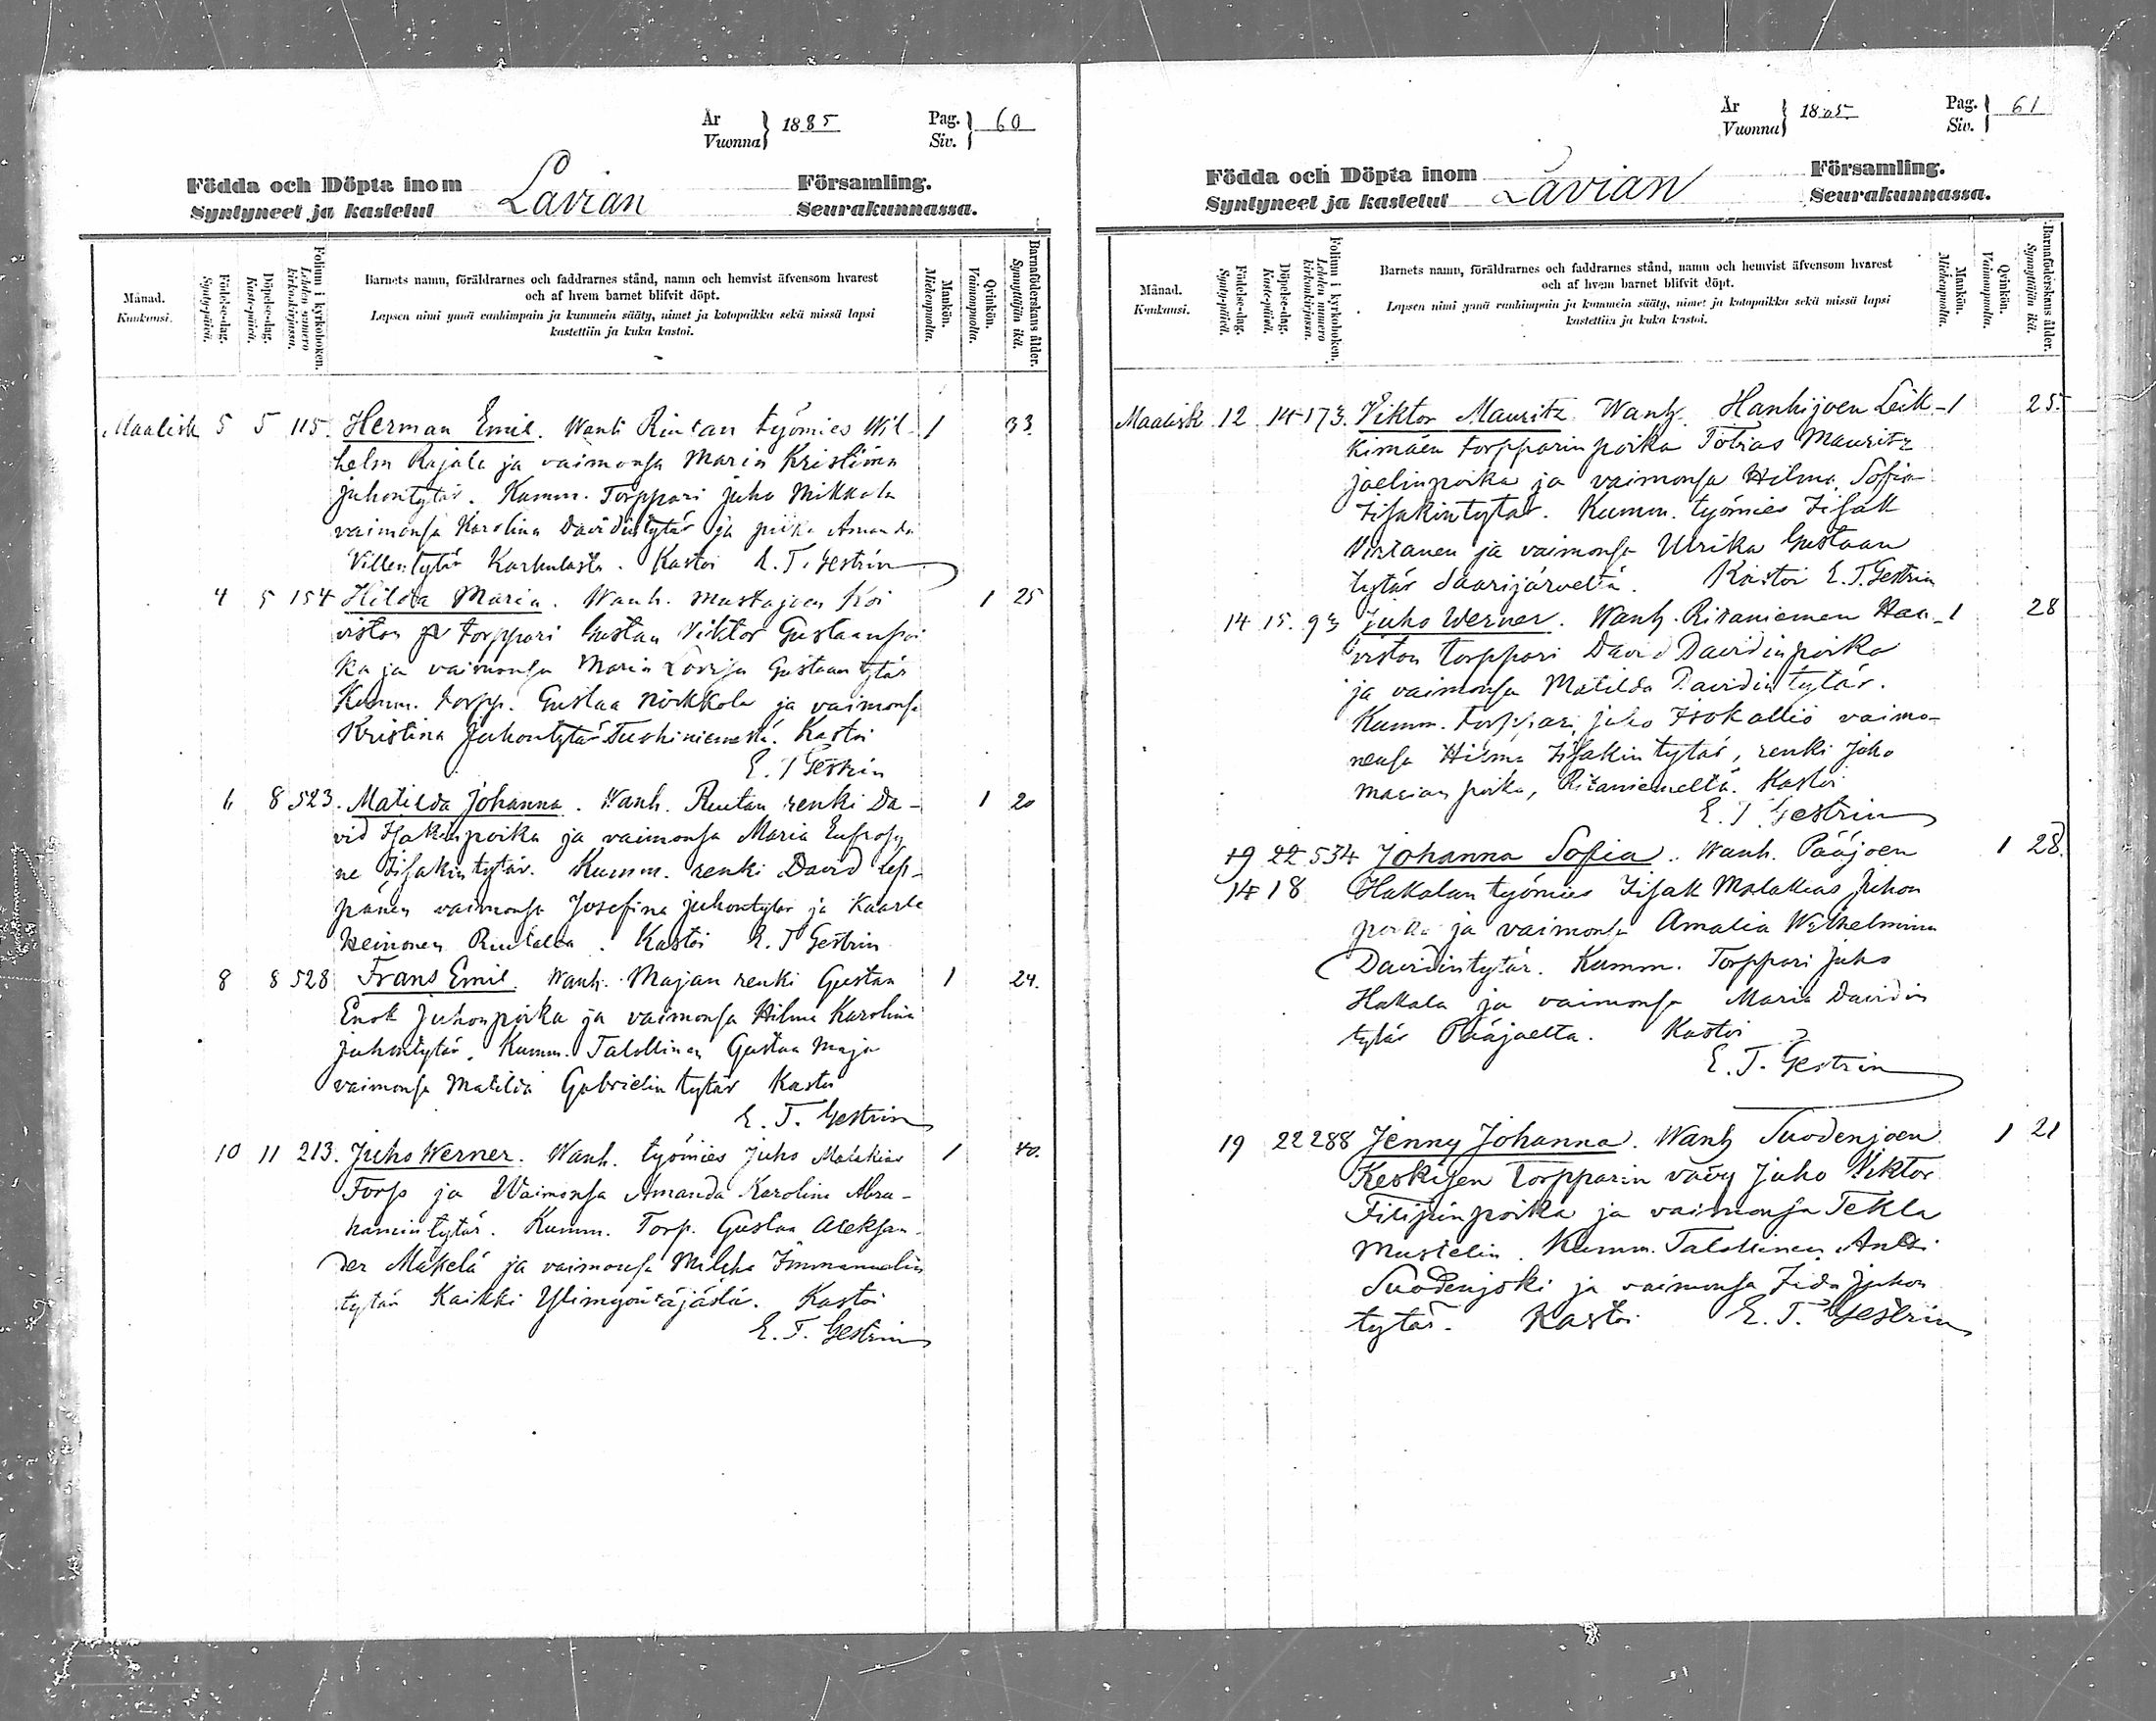 År
Vuonna } 1885 Pag.
Siv. } 60
Födda och Döpta inom Församling.
Lavian
Syntyneet ja kastetut Seurakunnassa.
Månad.
Kuukausi.
Födelse-dag.
Synty-päivä.
Döpelse-dag.
Kaste-päivä.
Folium i kyrkoboken.
Lehden numero kirkonkirjassa.
Barnets namn, föräldrarnes och faddrarnes stånd, namn och hemvist äfvensom hvarest
och af hvem barnet blifvit döpt.
Lapsen nimi ynnä vanhimpain ja kummein sääty, nimet ja kotopaikka sekä missä lapsi
kastettiin ja kuka kastoi.
Mankön.
Miehenpuolta.
Qvinkön.
Vaimonpuolta.
Barnaföderskans ålder.
Synnyttäjän ikä.
Maalisk 5 5 115. Herman Emil. Wanh Riutan työmies Wil- 1 33.
helm Rajala ja vaimonsa Maria Kristiina
Juhontytär. Kumm. Torppari Juho Mikkola
vaimonsa Karolina Davidintytär ja piika Amanda
Villentytär Karhulasta. Kastoi E. T. Gestrin
4 5 154 Hilda Maria. Wanh. Mustajoen Koi 1 25
viston torppari Gustaa Viktor Gustaanpoi
ka ja vaimonsa Maria Lovisa Gustaantytär
Kumm. torpp. Gustaa Nörkkola ja vaimonsa
Kristina Juhontytär Kastoi
E. T Gestrin
6 8 523. Matilda Johanna. Wanh. Riutan renki Da- 1 20
vid Isakinpoika ja vaimonsa Maria Eufrosy
ne Iisakintytär. Kumm. renki David Lep-
pänen vaimonsa Josefina Juhontytär ja Kaarle
Heinonen Riutalta. Kastoi E. T Gestrin
8 8 528 Frans Emil. Wanh. Majan renki Gustaa 1 24.
Enok Juhonpoika ja vaimonsa Hilma Karolina
Juhontytär. Kumm. Talollinen Gustaa Maja
vaimonsa Matilda Gabrielintytär Kastoi
E. T. Gestrin
10 11 213. Juho Werner. Wanh. työmies Juho Malakias 1 40.
Forss ja Waimonsa Amanda Karolina Abra-
hamintytär. Kumm. Torp. Gustaa Aleksan-
der Mäkelä ja vaimonsa Milcha Immanuelin
tytär Kaikki Ylimyöntäjästä. Kastoi
E. T. Gestrin
År
Vuonna } 1885 Pag.
Siv. } 61
Födda och Döpta inom Församling.
Lavian
Syntyneet ja kastetut Seurakunnassa.
Månad.
Kuukausi.
Födelse-dag.
Synty-päivä.
Döpelse-dag.
Kaste-päivä.
Folium i kyrkoboken.
Lehden numero kirkonkirjassa.
Barnets namn, föräldrarnes och faddrarnes stånd, namn och hemvist äfvensom hvarest
och af hvem barnet blifvit döpt.
Lapsen nimi ynnä vanhimpain ja kummein sääty, nimet ja kotopaikka sekä missä lapsi
kastettiin ja kuka kastoi.
Mankön.
Miehenpuolta.
Qvinkön.
Vaimonpuolta.
Barnaföderskans ålder.
Synnyttäjän ikä.
Maalisk 12 14 173. Viktor Mauritz. Wanh. Hanhijoen Leik- 1 25.
kimäen torpparin poika Tobias Mauritz
Joelinpoika ja vaimonsa Hilma Sofia
Iisakintytär. Kumm. työmies Iisak
Virtanen ja vaimonsa Ulrika Gustaan
tytär Saarijärveltä. Kastoi E. T. Gestrin
14 15. 93 Juho Werner. Wanh. Ritaniemen Haa- 1 28
viston torppari David Davidinpoika
ja vaimonsa Matilda Davidintytär.
Kumm. torppari Juho Isokallio vaimo-
nensa Hilma Iisakintytär, renki Juho
Marianpoika, Ritaniemeltä. Kastoi
E. T Gestrin
19 22 534 Johanna Sofia. Wanh. Pääjoen 1 28.
14 18 Hakalan työmies Iisak Malakias Juhon
poika ja vaimonsa Amalia Wilhelmina
Davidintytär. Kumm. Torppari Juho
Hakala ja vaimonsa Maria Davidin
tytär Pääjoelta. Kastoi
E. T. Gestrin
19 22 288 Jenny Johanna. Wanh Suodenjoen 1 21
Keskisen torpparin vävy Juho Viktor
Filipinpoika ja vaimonsa Tekla
Mustelin. Kumm. Talollinen Antti
Suodenjoki ja vaimonsa Iida Juhon
tytär. Kastoi E. T. Gestrin